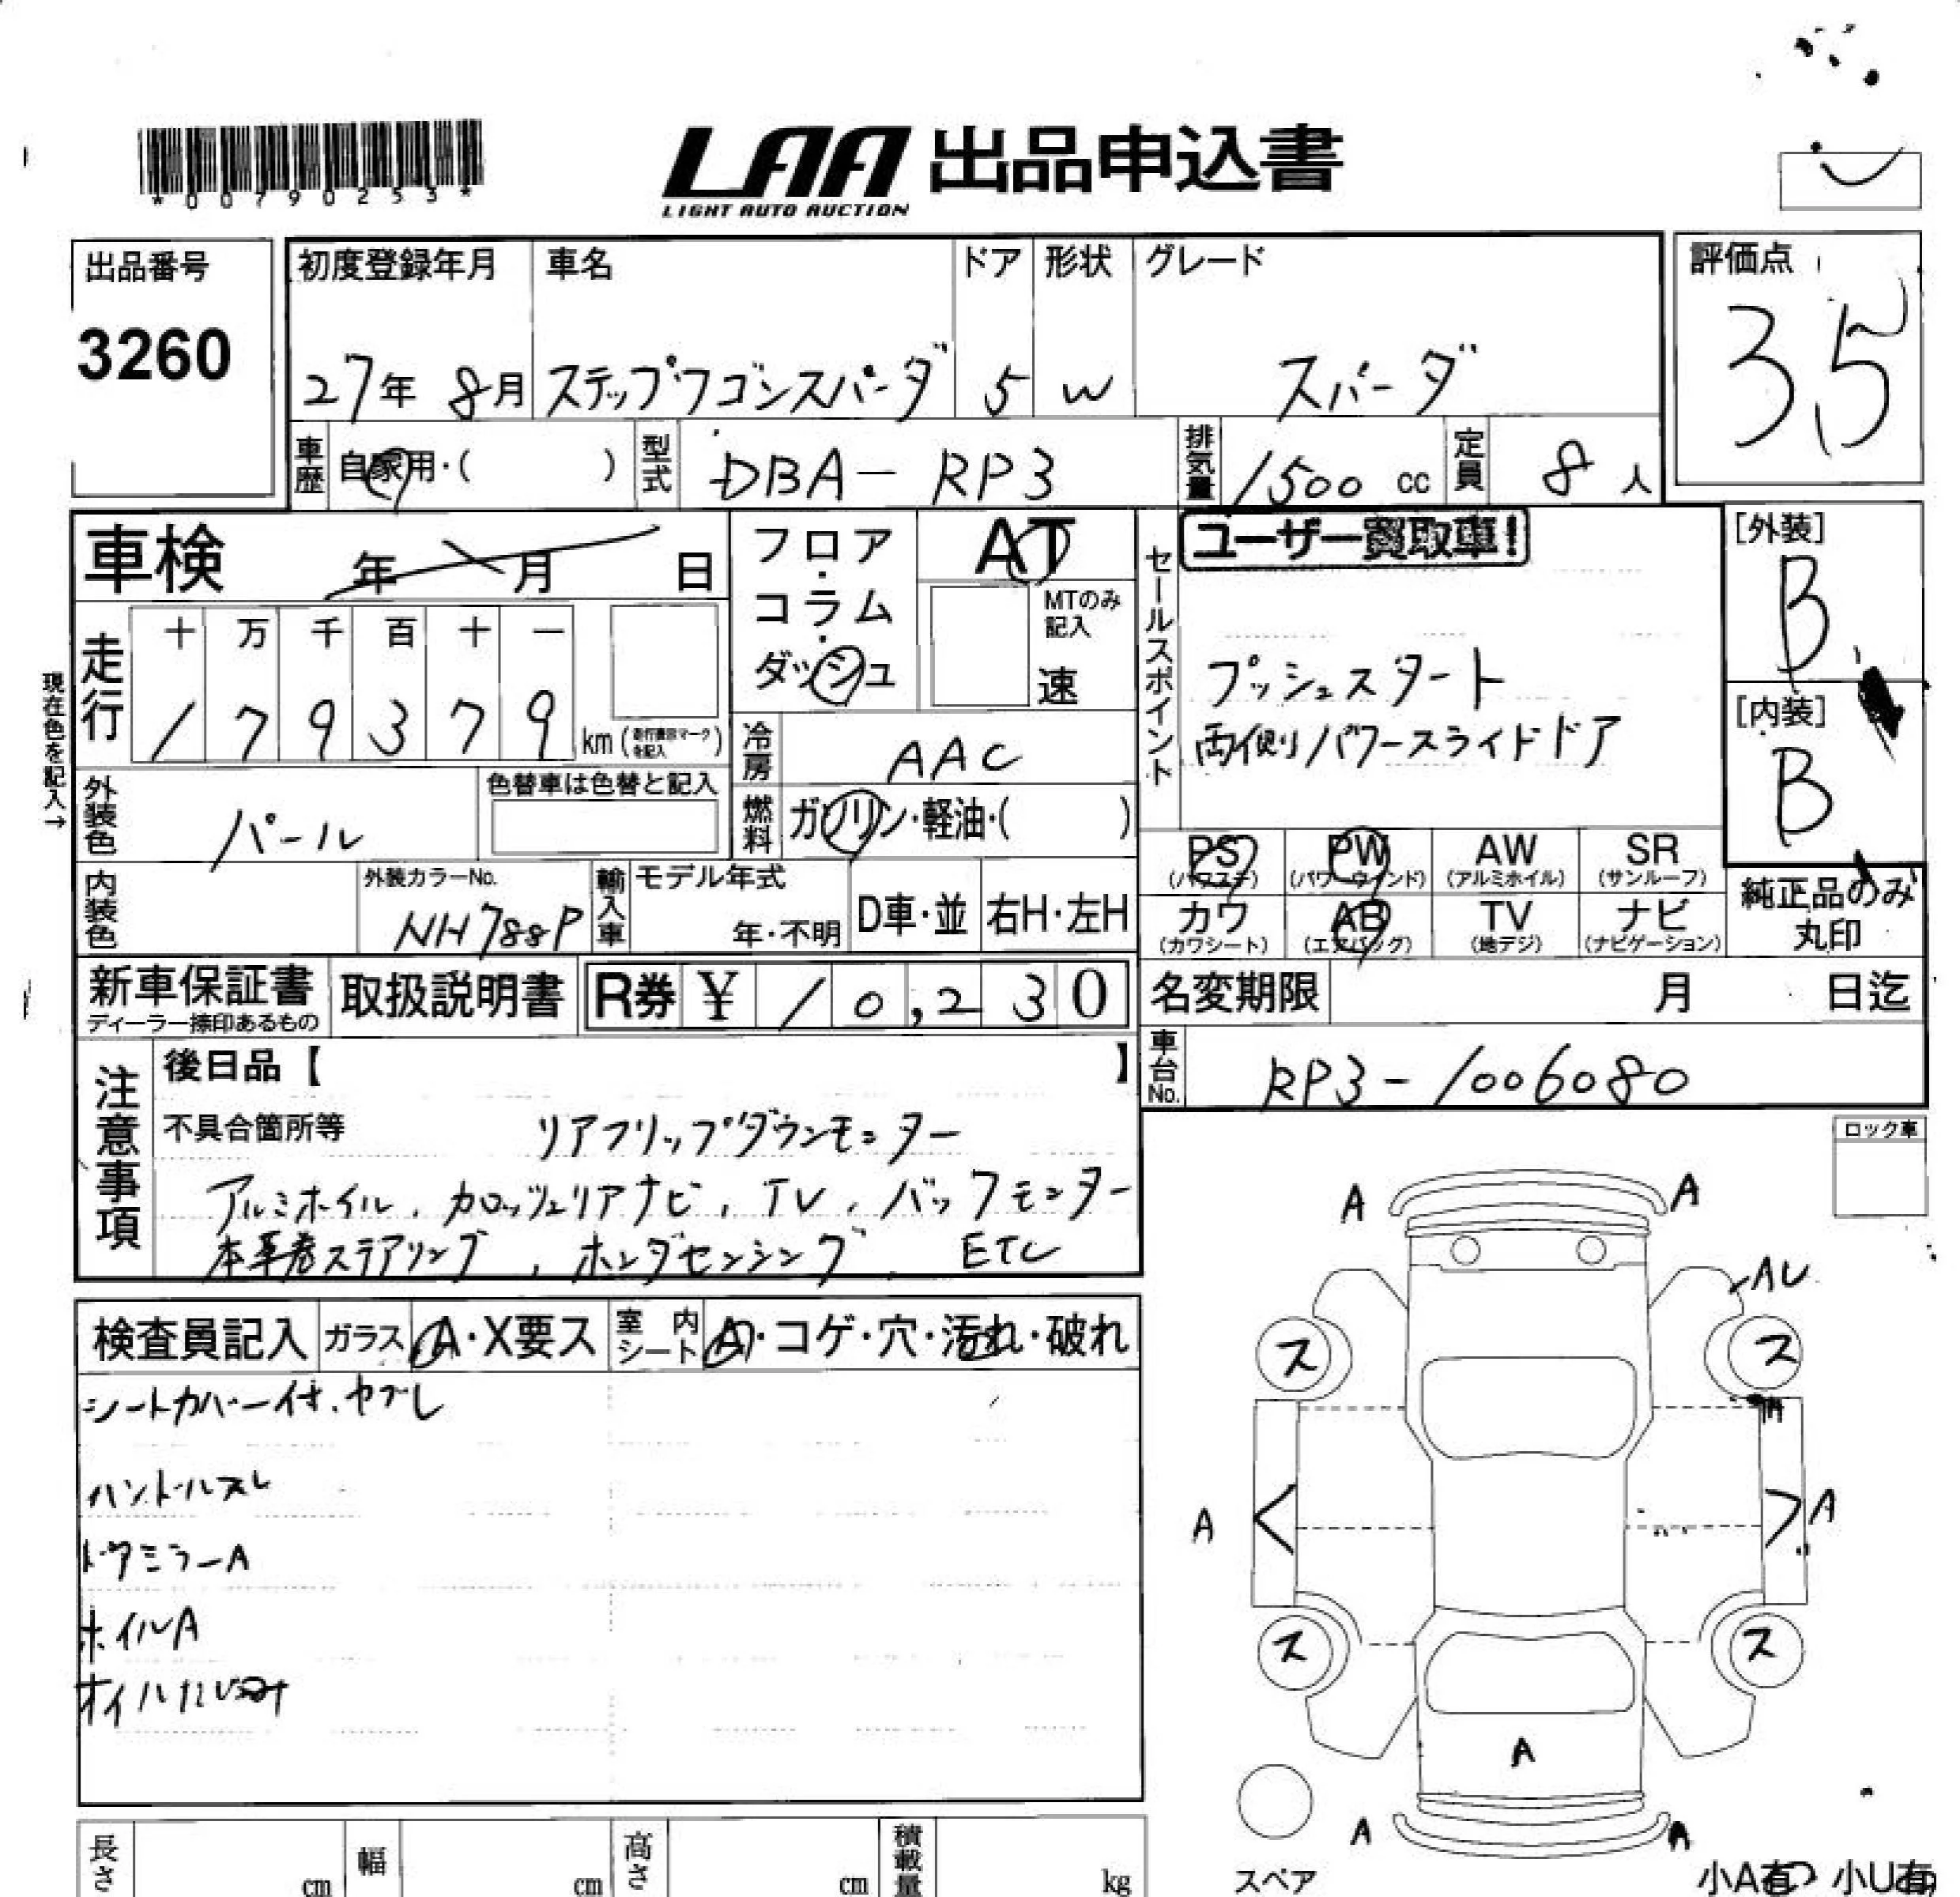 *00790253*
LAA 出品申込書
LIGHT AUTO AUCTION
出品番号
3260
初度登録年月
27年 8月
車名
ステップワゴンスパーダ
ドア
5
形状
W
グレード
スパーダ
評価点
3.5
車歴
自家用・( )
型式
DBA-RP3
排気量
1500 cc
定員
8 人
車検 年 月 日
フロア・コラム・ダッシュ
AT
MTのみ記入
速
セールスポイント
ユーザー買取車!
プッシュスタート
両側パワースライドドア
[外装]
B
[内装]
B
現在色を記入→
走行
十 万 千 百 十 一
1 7 9 3 7 9 km (走行表示マークを記入)
冷房
AAC
外装色
パール
色替車は色替と記入
燃料
ガソリン・軽油・( )
PS (パワステ)
PW (パワーウインド)
AW (アルミホイル)
SR (サンルーフ)
カワ (カワシート)
AB (エアバッグ)
TV (地デジ)
ナビ (ナビゲーション)
純正品のみ丸印
内装色
外装カラーNo.
NH788P
輸入車
モデル年式
年・不明
D車・並
右H・左H
新車保証書
ディーラー捺印あるもの
取扱説明書
R券 ¥ 10,230
名変期限 月 日迄
車台No.
RP3-1006080
注意事項
後日品【 】
不具合箇所等 リアフリップダウンモニター
アルミホイル、カロッツェリアナビ、TV、バックモニター
本革巻ステアリング、ホンダセンシング、ETC
ロック車
検査員記入 ガラス A・X要ス 室内シート A・コゲ・穴・汚れ・破れ
シートカバー付、ヤブレ
ハンドルスレ
ドアミラーA
ホイルA
オイルにじみ
A A
AU
ス ス
A A
ス ス
A
A A
スペア
小A有 小U有
長さ cm
幅 cm
高さ cm
積載量 kg